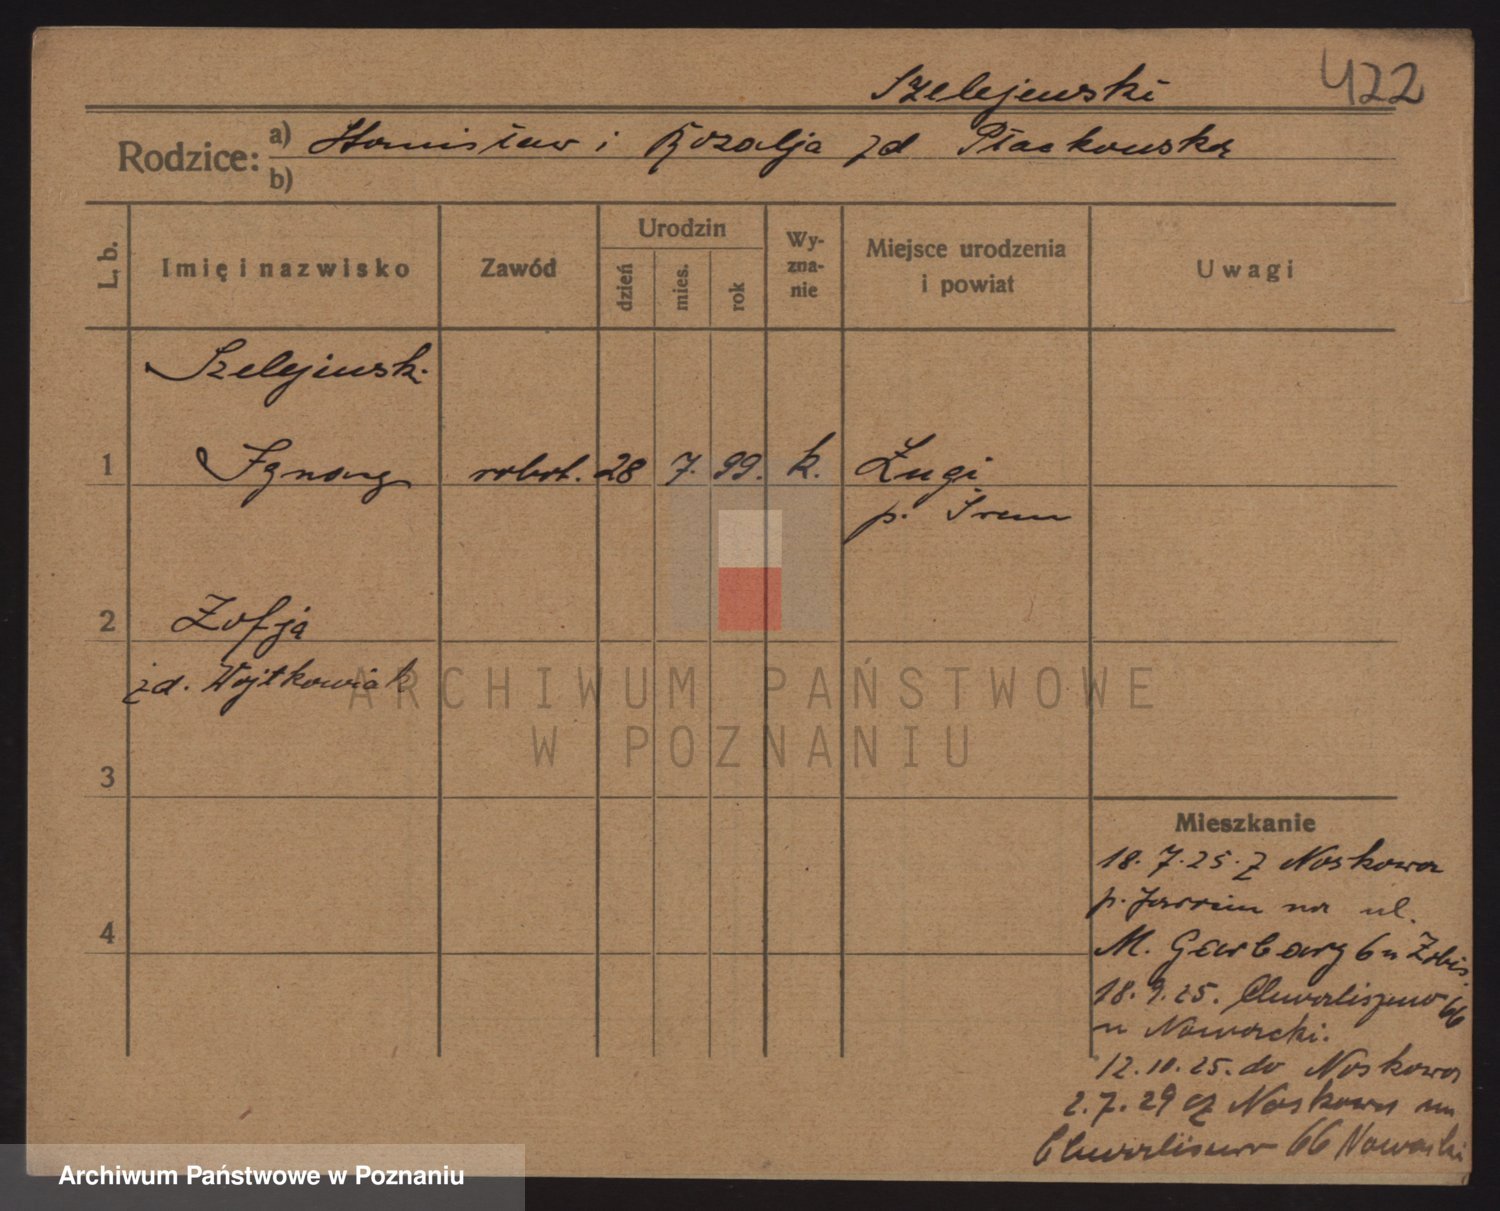 Szelejewski
422
Rodzice: a) Stanisław i Rozalja zd Ptackowska
b)
L. b.
Imię i nazwisko
Zawód
Urodzin
dzień
mies.
rok
Wy-
zna-
nie
Miejsce urodzenia
i powiat
Uwagi
Szelejewski
1 Ignacy robot. 28 7. 99. k. Żugi
p. Śrem
2 Zofja
zd. Wojtkowiak
3
4
Mieszkanie
18.7.25. z Noskowa
p. Jarocin na ul.
M. Garbary 6 u
18.9.25. Chwaliszewo 66
u Nowacki.
12.10.25. do Noskowa
2.7.29 z Noskowa na
Chwaliszewo 66 Nowacki
ARCHIWUM PAŃSTWOWE
W POZNANIU
Archiwum Państwowe w Poznaniu